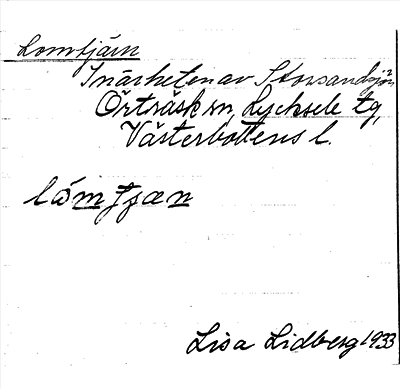 Lomtjärn
I närheten av Storsandsjön
Örträsk sn, Lycksele tg,
Västerbottens l.
lómtjæn
Lisa Lidberg 1933